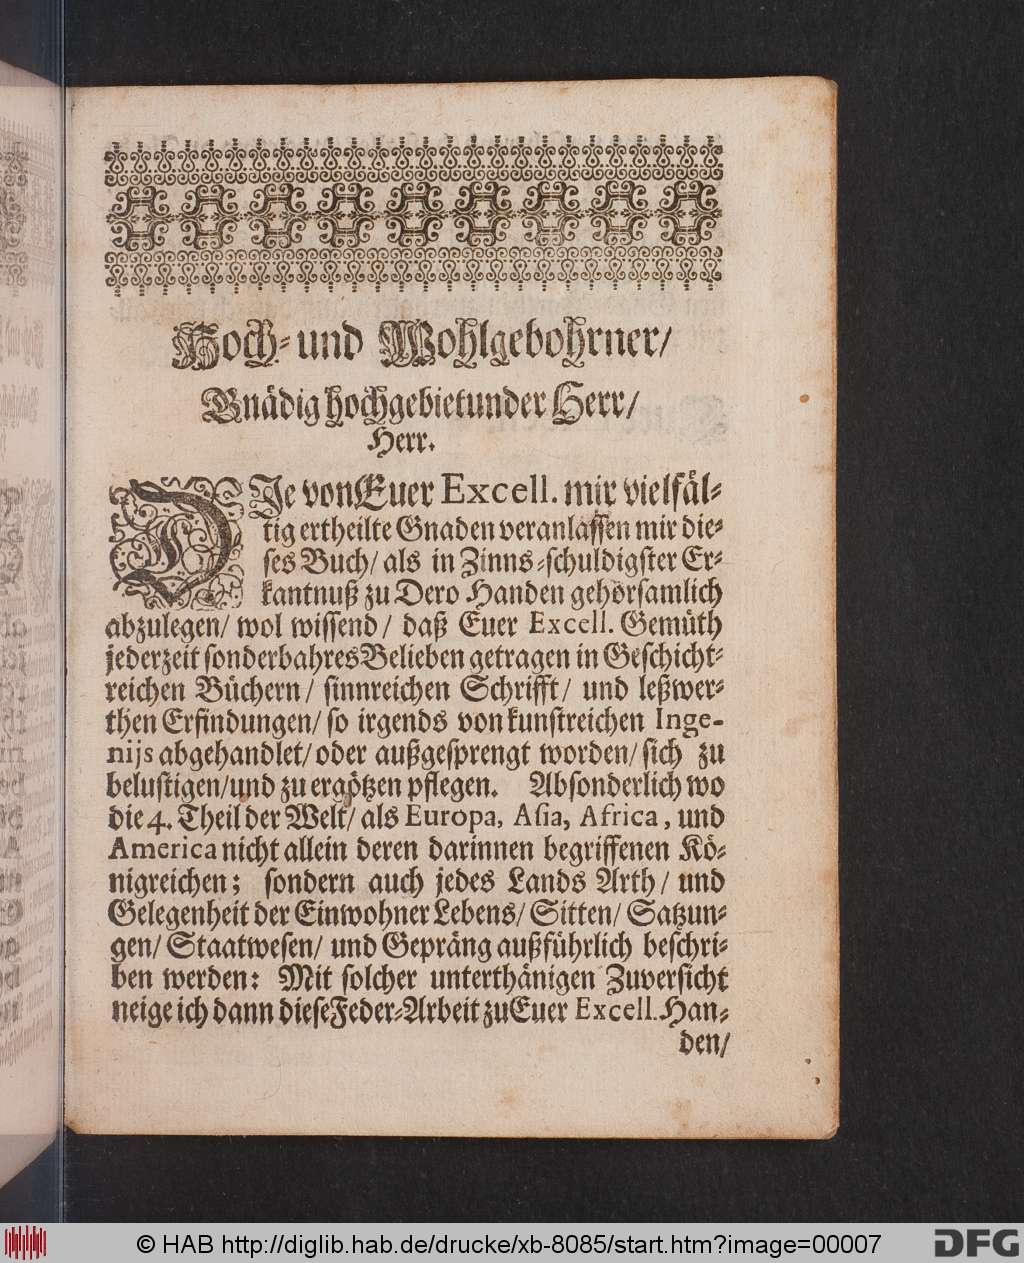 Hoch- und Wohlgebohrner/
Gnädig hochgebietunder Herr/
Herr.
DIe von Euer Excell. mir vielfäl-
tig ertheilte Gnaden veranlassen mir die-
ses Buch/ als in Zinns-schuldigster Er-
kantnuß zu Dero Handen gehorsamlich
abzulegen/ wol wissend/ daß Euer Excell. Gemüth
jederzeit sonderbahres Belieben getragen in Geschicht-
reichen Büchern/ sinnreichen Schrifft/ und leßwer-
then Erfindungen/ so irgends von kunstreichen Inge-
nijs abgehandlet/ oder außgesprengt worden/ sich zu
belustigen/ und zu ergötzen pflegen. Absonderlich wo
die 4. Theil der Welt/ als Europa, Asia, Africa, und
America nicht allein deren darinnen begriffenen Kö-
nigreichen; sondern auch jedes Lands Arth/ und
Gelegenheit der Einwohner Lebens/ Sitten/ Satzun-
gen/ Staatwesen/ und Gepräng außführlich beschri-
ben werden: Mit solcher unterthänigen Zuversicht
neige ich dann diese Feder-Arbeit zu Euer Excell. Han-
den/
© HAB http://diglib.hab.de/drucke/xb-8085/start.htm?image=00007
DFG